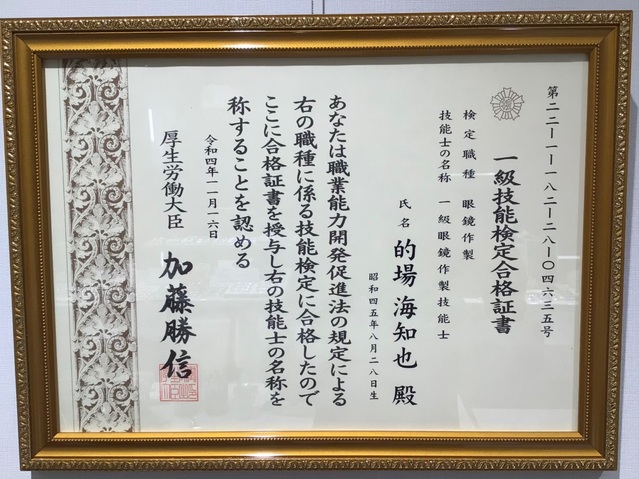 第二二ー一ー一八二ー二八ー〇四六三五号
一級技能検定合格証書
検定職種 眼鏡作製
技能士の名称 一級眼鏡作製技能士
氏名 的場 海知也 殿
昭和四五年八月二八日生
あなたは職業能力開発促進法の規定による
右の職種に係る技能検定に合格したので
ここに合格証書を授与し右の技能士の名称を
称することを認める
令和四年一一月一六日
厚生労働大臣 加藤勝信